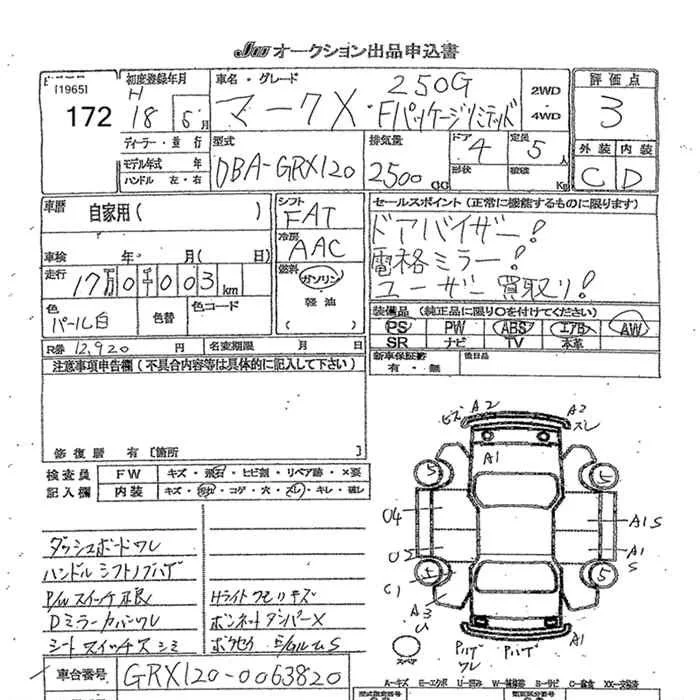 JU オークション出品申込書
[1965]
172
初度登録年月
H 18 5月
車名・グレード
250G
マークX・Fパッケージリミテッド
2WD
・
4WD
評価点
3
ディーラー・並行
モデル年式 年
ハンドル 左・右
型式
DBA-GRX120
排気量
2500 CC
ドア
4
形状
定員
5人
積載
Kg
外装 内装
C D
車歴 自家用( )
シフト
FAT
セールスポイント(正常に機能するものに限ります)
冷房
AAC
ドアバイザー!
電格ミラー!
ユーザー買取り!
車検 年 月( 日)
走行 17万0千003km
燃料
ガソリン
軽油
( )
色
パール白
色替
色コード
装備品(純正品に限り○を付けてください)
PS PW ABS エアB AW
SR ナビ TV 本革
R券 12,920円
名変期限 月 日
新車保証書
有・無
後日品
注意事項申告欄(不具合内容等は具体的に記入して下さい)
修復歴 有〔箇所 〕
検査員
記入欄
FW キズ・飛石・ヒビ割・リペア跡・×要
内装 キズ・汚れ・コゲ・穴・スレ・キレ・破レ
ダッシュボードワレ
ハンドルシフトノブハゲ
P/Wスイッチ不良
Dミラーカバーワレ
シートスイッチスミ
Hライトクモリキズ
ボンネットダンパーX
A2
A2
スレ
A1
5
5
U4
A1S
A1
S
C1
5
5
A3
U
Pハゲ
ワレ
Pハゲ
A1
スペア
車台番号
GRX120-0063820
A-キズ E-エクボ U-凹み W-補修跡 S-サビ C-腐食 XX-交換済